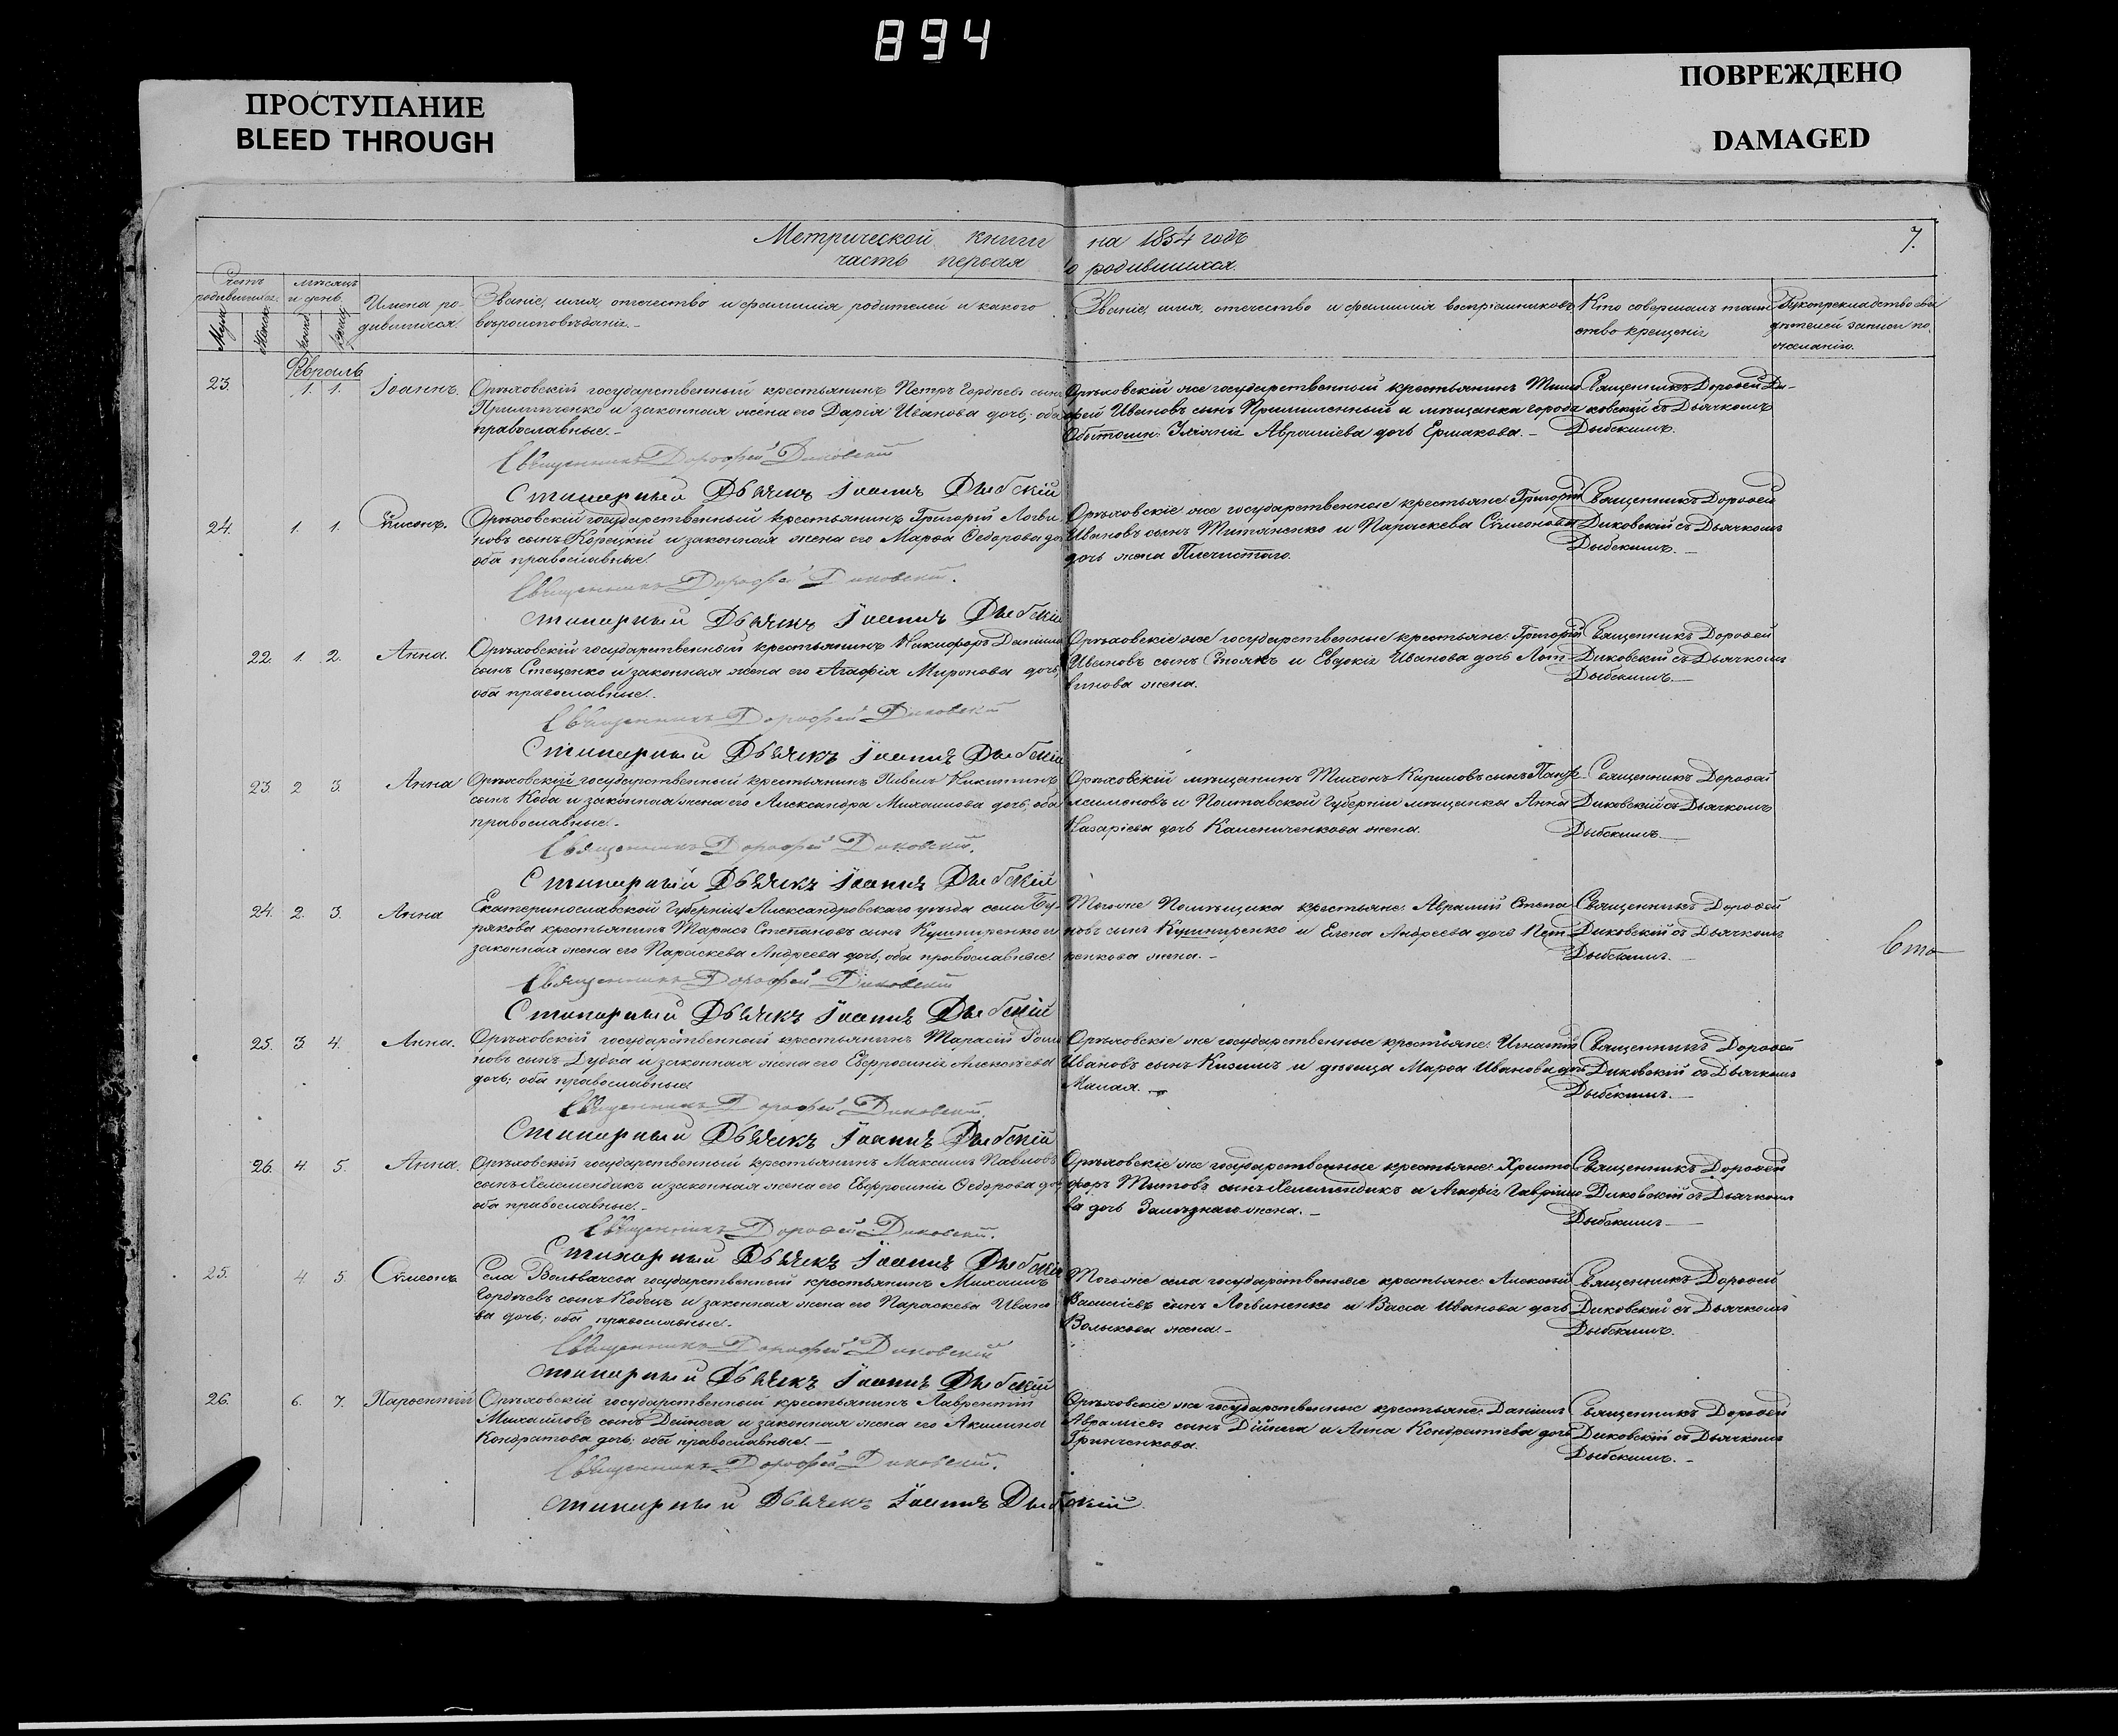 894
ПРОСТУПАНИЕ
BLEED THROUGH
ПОВРЕЖДЕНО
DAMAGED
Метрической книги на 1854 годъ 7.
часть первая о родившихся.
Счетъ родившихся.
Муж. Женск.
мѣсяцъ и день.
Имена родившихся.
Званіе, имя, отечество и фамилія родителей и какого
вѣроисповѣданія.
Званіе, имя, отечество и фамилія воспріемниковъ
Кто совершалъ таин
ство крещенія
Рукоприкладство сви
дѣтелей записи по
желанію.
Февраль
23. 1. 1. Іоаннъ.
Орѣховскій государственный крестьянинъ Петръ Гордѣевъ сынъ
и законная жена его Дарія Иванова дочь; оба
православные.-
Священникъ Дорофей Диковскій
Стихарный Дьячекъ Іоаннъ Дыбскій
Орѣховскій же государственный крестьянинъ Тимо
фей Ивановъ сынъ и мѣщанка города
Аврамiева дочь Ермакова.-
Священникъ Дорофей Ди-
ковскій съ Дьячкомъ
Дыбскимъ.
24. 1. 1.
Орѣховскій государственный крестьянинъ Григорій Логви
новъ сынъ Корецкій и законная жена его Марѳа Ѳедорова до
оба православные.
Священникъ Дорофей Диковскій.
Стихарный Дьячекъ Іоаннъ Дыбскій
Орѣховскіе же государственные крестьяне: Григорій
Ивановъ сынъ и Параскева Сѵмеонова
дочь жена
Священникъ Дорофей
Диковскій съ Дьячкомъ
Дыбскимъ.-
22. 1. 2. Анна.
Орѣховскій государственный крестьянинъ Никифоръ Даніилов
сынъ Стеценко и законная жена его Агафія Миронова дочь,
оба православные.
Священникъ Дорофей Диковскій
Стихарный Дьячекъ Іоаннъ Дыбскій
Орѣховскіе же государственные крестьяне: Григорій
Ивановъ сынъ Столякъ и Евдокія Иванова дочь
жена.
Священникъ Дорофей
Диковскій съ Дьячкомъ
Дыбскимъ.-
23. 2 3. Анна
Орѣховскій государственный крестьянинъ Павелъ Никитинъ
сынъ Коба и законная жена его Александра Михаилова дочь, оба
православные.-
Священникъ Дорофей Диковскій.
Стихарный Дьячекъ Іоаннъ Дыбскій
Орѣховскій мѣщанинъ Тихонъ Кириловъ сынъ
и Полтавской Губерніи мѣщанка Анна
Назаріева дочь Калениченкова жена.
Священникъ Дорофей
Диковскій съ Дьячкомъ
Дыбскимъ.-
24. 2. 3. Анна
Екатеринославской Губерніи Александровскаго уѣзда села Бу-
рякова крестьянинъ Тарасъ Степановъ сынъ Кушниренко и
законная жена его Параскева Андреева дочь, оба православные.
Священникъ Дорофей Диковскій
Стихарный Дьячекъ Іоаннъ Дыбскій
Тогоже Помѣщика крестьяне: Аврамій Степа
новъ сынъ Кушниренко и Елена Андреева дочь Пет
ренкова жена.-
Священникъ Дорофей
Диковскій съ Дьячкомъ
Дыбскимъ.-
25. 3. 4. Анна.
Орѣховскій государственный крестьянинъ Тарасій Рома
новъ сынъ Дудка и законная жена его Евфросинія Алексѣева
дочь; оба православные
Священникъ Дорофей Диковскій.
Стихарный Дьячекъ Іоаннъ Дыбскій
Орѣховскіе же государственные крестьяне: Игнатій
Ивановъ сынъ и дѣвица Марѳа Иванова дочь
Малая.-
Священникъ Дорофей
Диковскій съ Дьячкомъ
Дыбскимъ.-
26. 4. 5. Анна.
Орѣховскій государственный крестьянинъ Максимъ Павловъ
сынъ Хелемендикъ и законная жена его Евфросинія Ѳедорова доч
оба православные.-
Священникъ Дорофей Диковскій.
Стихарный Дьячекъ Іоаннъ Дыбскій
Орѣховскіе же государственные крестьяне: Христо
форъ Титовъ сынъ Хелемендикъ и Агафія Гавріило
ва дочь жена.-
Священникъ Дорофей
Диковскій съ Дьячкомъ
Дыбскимъ.-
25. 4. 5. Сѵмеонъ
Села государственный крестьянинъ Михаилъ
Гордѣевъ сынъ Кобецъ и законная жена его Параскева Ивано
ва дочь; оба православные.-
Священникъ Дорофей Диковскій
Стихарный Дьячекъ Іоаннъ Дыбскій
Тогоже села государственные крестьяне: Алексій
Василіевъ сынъ Логвиненко и Васса Иванова дочь
Волыкова жена.-
Священникъ Дорофей
Диковскій съ Дьячкомъ
Дыбскимъ.
26. 6. 7. Парѳентій
Орѣховскій государственный крестьянинъ Лаврентій
Михаиловъ сынъ Дейнега и законная жена его Акилина
Кондратова дочь; оба православные.-
Священникъ Дорофей Диковскій.
Стихарный Дьячекъ Іоаннъ Дыбскій.
Орѣховскіе же государственные крестьяне: Даніилъ
Аврамiевъ сынъ Дейнега и Анна Кондратіева дочь
Гринченкова.
Священникъ Дорофей
Диковскій съ Дьячкомъ
Дыбскимъ.-